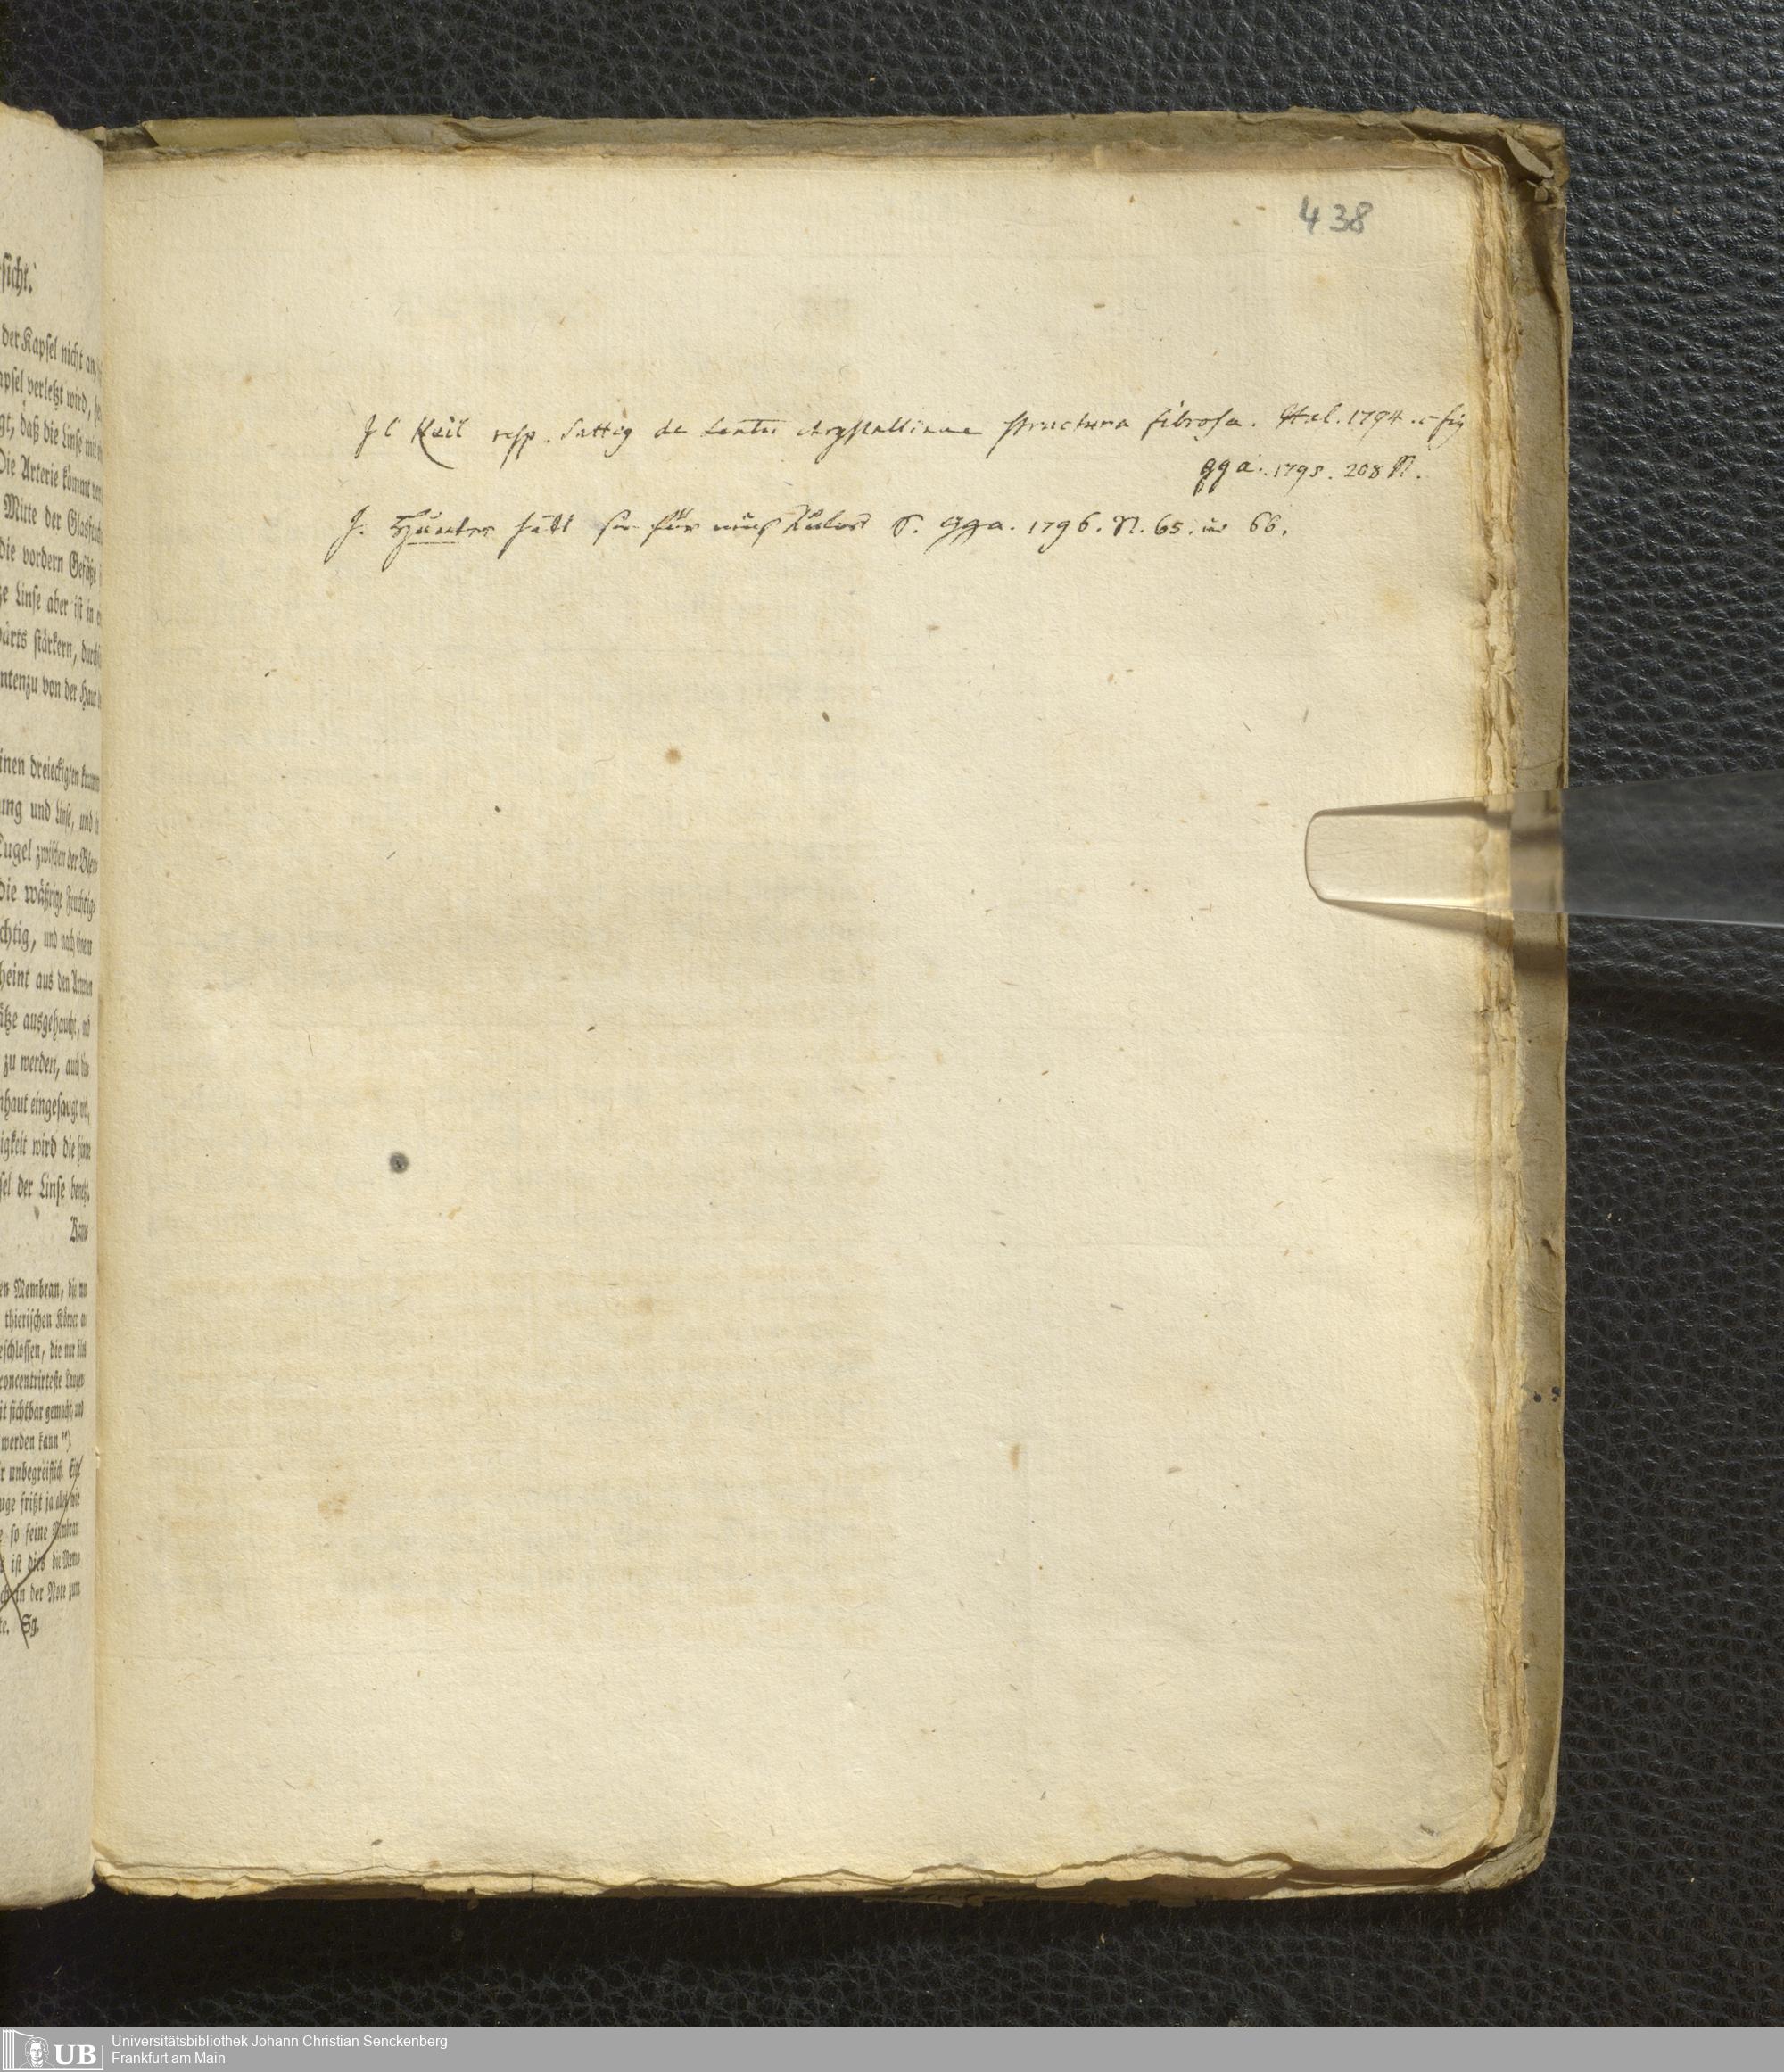 438
J C Reil resp. Sattig de Lentis chrystallinae structura fibrosa. Hal. 1794. c fig
gga. 1795. 208 N.
J. Hunter hält sie für S. gga. 1796. N. 65. u 66.
sicht.
der Kapsel nicht an,
apsel verletzt wird,
gt, daß die Linse mit
Die Arterie kömmt
Mitte der
die vordern Gefäße
ze Linse aber ist in
wärts stärkern,
ntenzu von der Haut
inen dreieckigten
ung und Linse, und
Kugel zwischen der
die wäßrige
chtig, und nach
heint aus den
ausgehaucht,
zu werden, auch
nhaut eingesaugt
igkeit wird die
sel der Linse
en Membran, die
thierischen Körper
eschlossen, die nur
concentrirteste
it sichtbar gemacht
werden kann")
r unbegreiflich.
uge frißt ja
e so feine
ist dies die
in der Note zum
te. Sg.
UB
Universitätsbibliothek Johann Christian Senckenberg
Frankfurt am Main